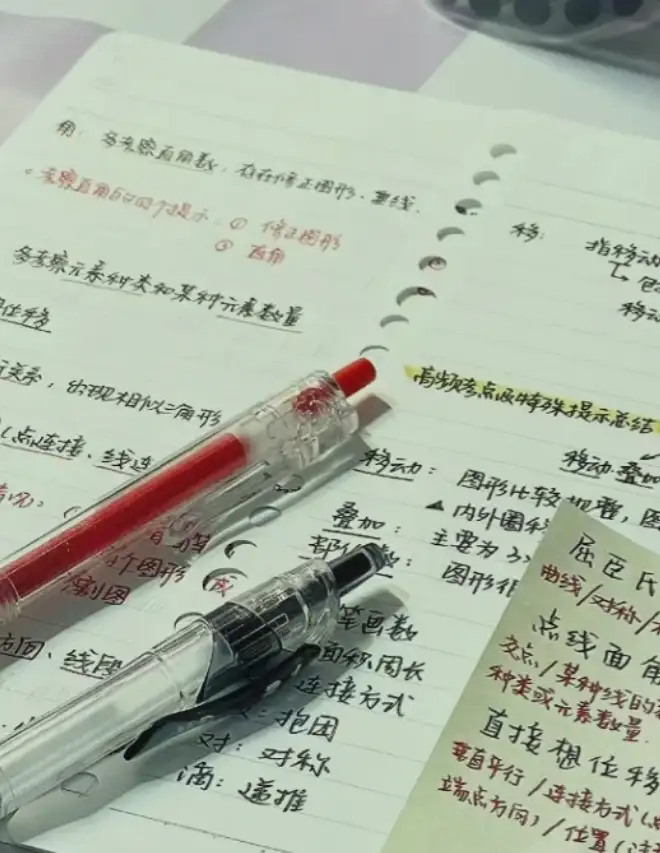 角：多考察直角数，存在修正图形、垂线.
。考察直角时的两个提示：① 修正图形
② 直角
多考察元素种类和某种元素数量
位移
关系，出现相似三角形
点连接、线连
个图形
方向、线段
移：指移动
移动
高频考点及特殊提示总结
移动·叠加
移动：图形比较规整，图
▲内外圈移
叠加：主要为
图形
笔画数
面积周长
连接方式
：抱团
对：对称
滴：递推
屈臣氏
曲线/对称/
点线面角
交点/某种线的
种类或元素数量.
直接想位移
垂直平行/连接方式(
端点方向)/位置(